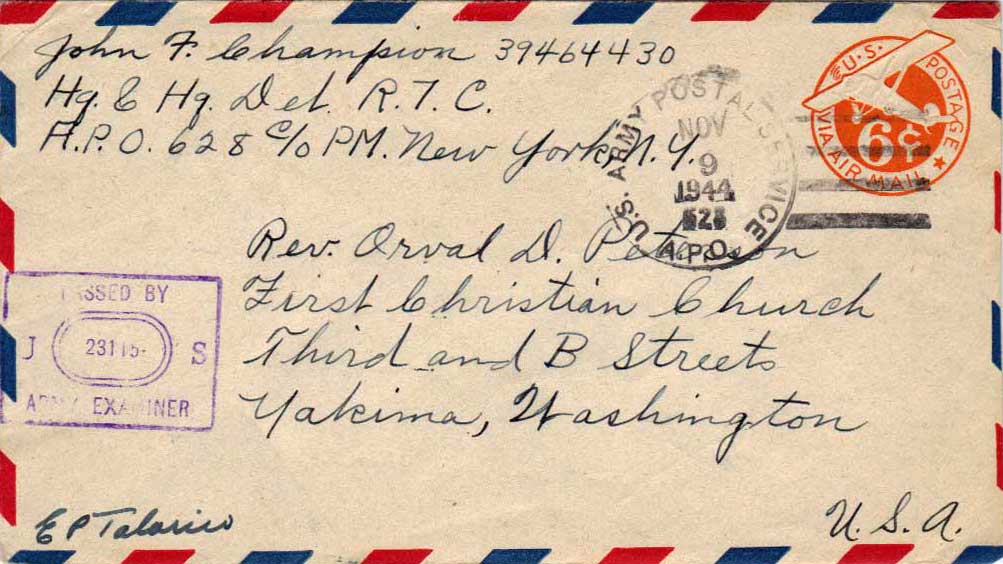 John F. Champion 39464430
Hq. & Hq. Det. R.T.C.
A.P.O. 628 c/o PM. New York, N.Y.
U.S. ARMY POSTAL SERVICE
NOV
9
1944
A.P.O.
U.S. POSTAGE
6¢
VIA AIR MAIL
Rev. Orval D. Peterson
First Christian Church
Third and B Streets
Yakima, Washington
U.S.A.
PASSED BY
J S
ARMY EXAMINER
E P Talarico